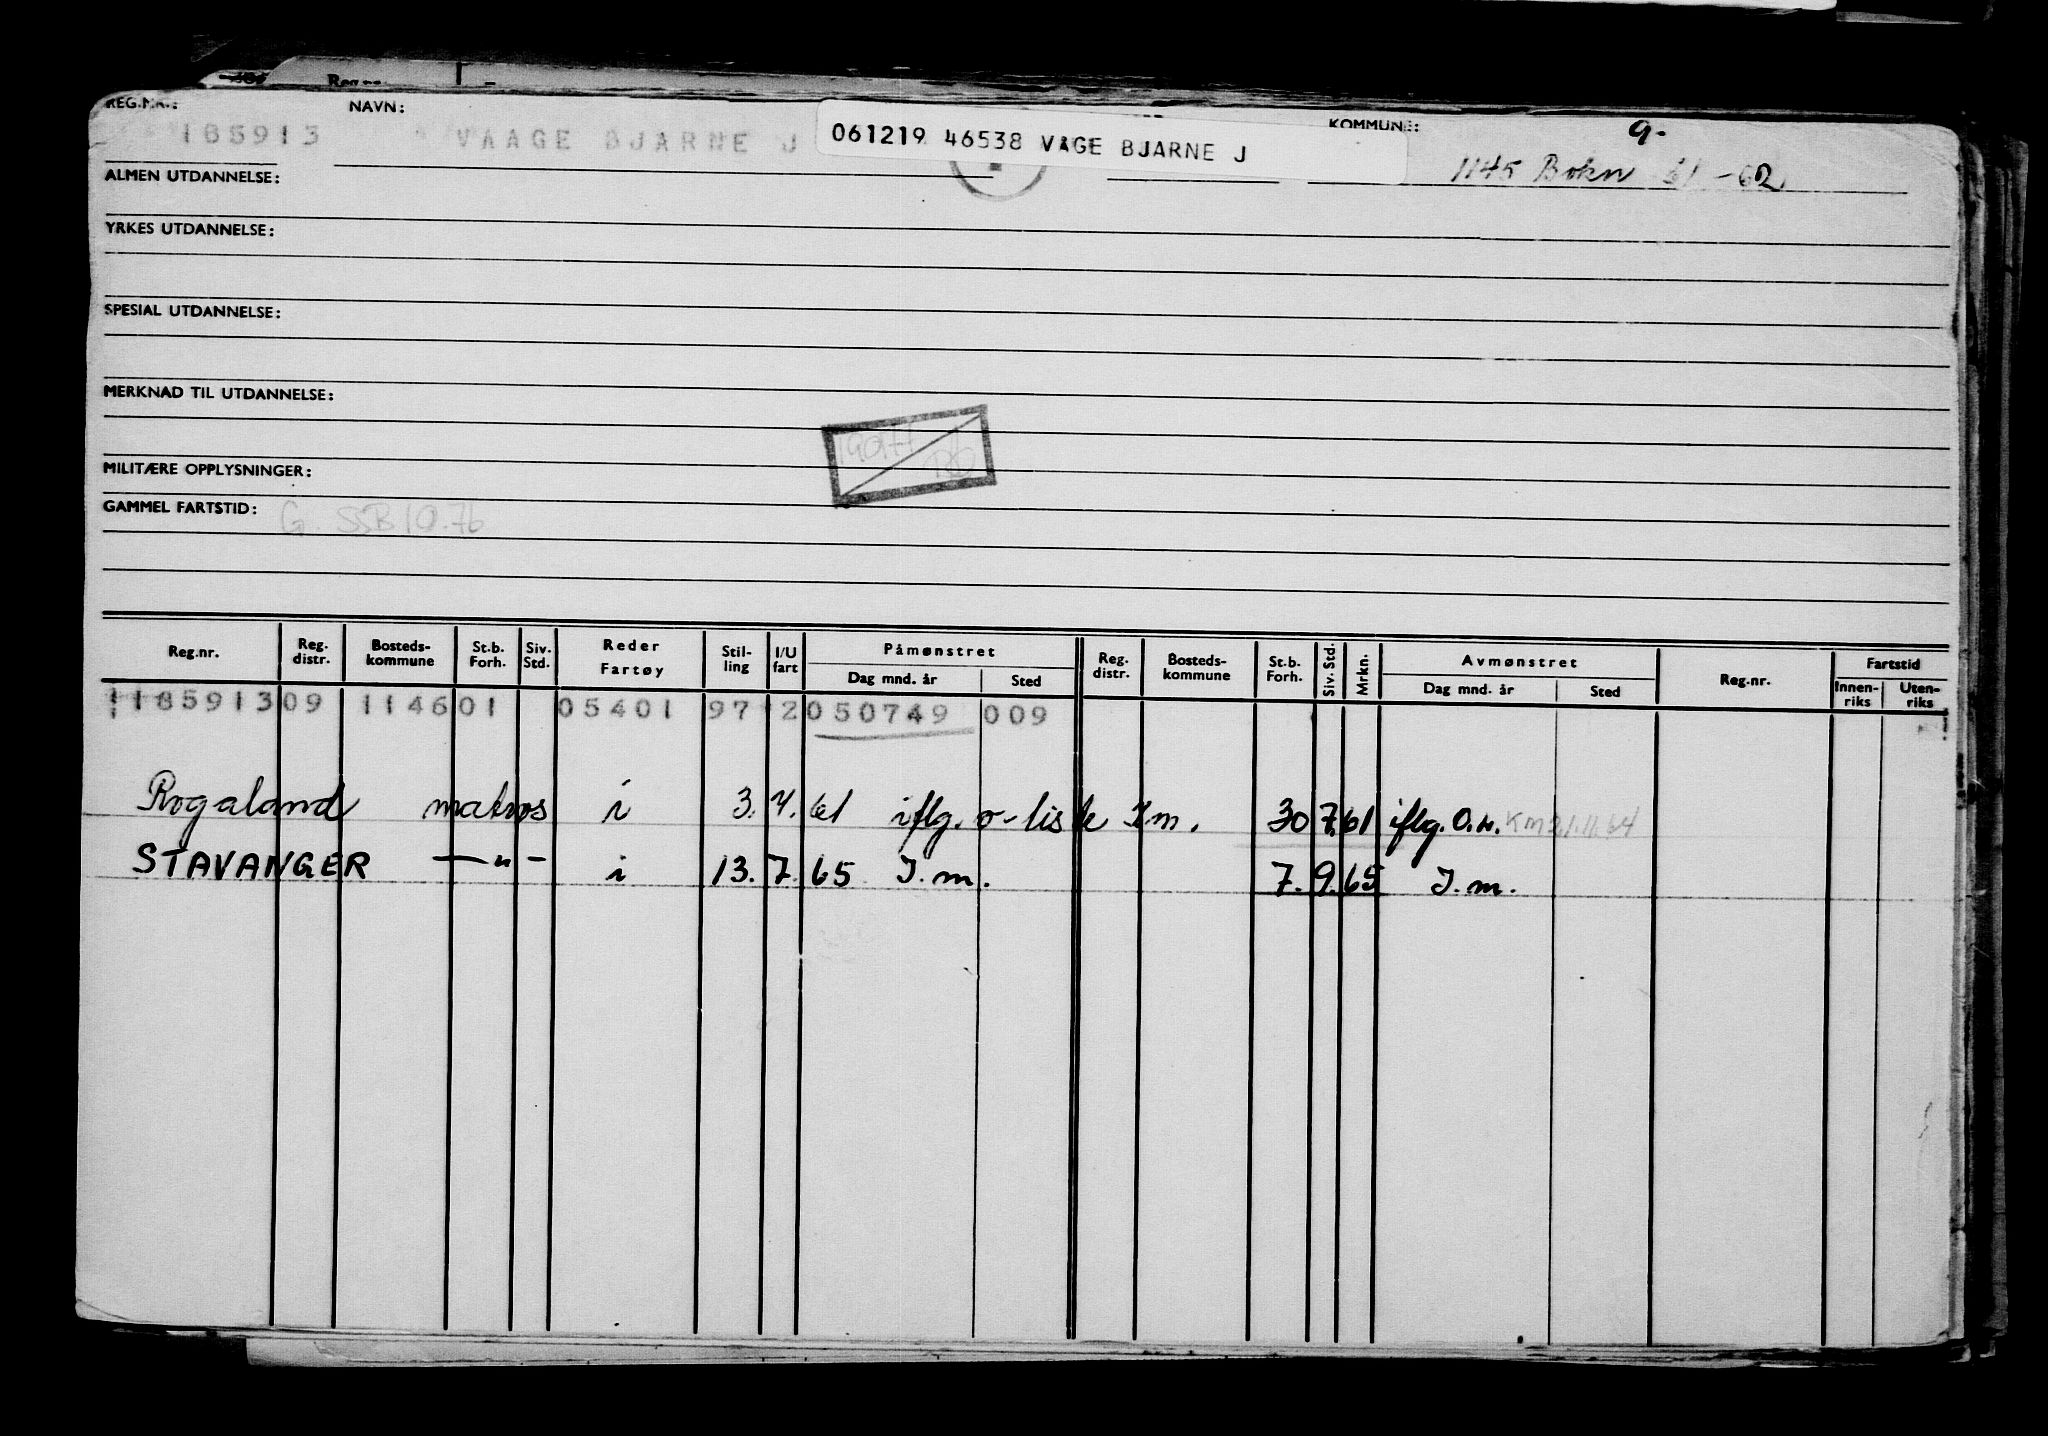 REG.NR.: NAVN: KOMMUNE: 9.
185913 VAAGE BJARNE J 061219 46538 VAGE BJARNE J 1145 Bokn 61-62
ALMEN UTDANNELSE:
YRKES UTDANNELSE:
SPESIAL UTDANNELSE:
MERKNAD TIL UTDANNELSE:
MILITÆRE OPPLYSNINGER:
GAMMEL FARTSTID: G. SSB 10.76
Reg.nr. Reg. distr. Bosteds-kommune St.b. Forh. Siv. Std. Reder Fartøy Stil-ling I/U fart Påmønstret Dag mnd. år Sted Reg. distr. Bosteds-kommune St.b. Forh. Siv. Std. Mrkn. Avmønstret Dag mnd. år Sted Reg.nr. Fartstid Innen-riks Uten-riks
185913 09 1146 01 05401 97 2 050749 009
Rogaland matros i 3. 4. 61 iflg. o-liste I.m. 30 7. 61 iflg. O.n. KM 21.11.64
STAVANGER —"— i 13. 7. 65 I.m. 7. 9. 65 I.m.